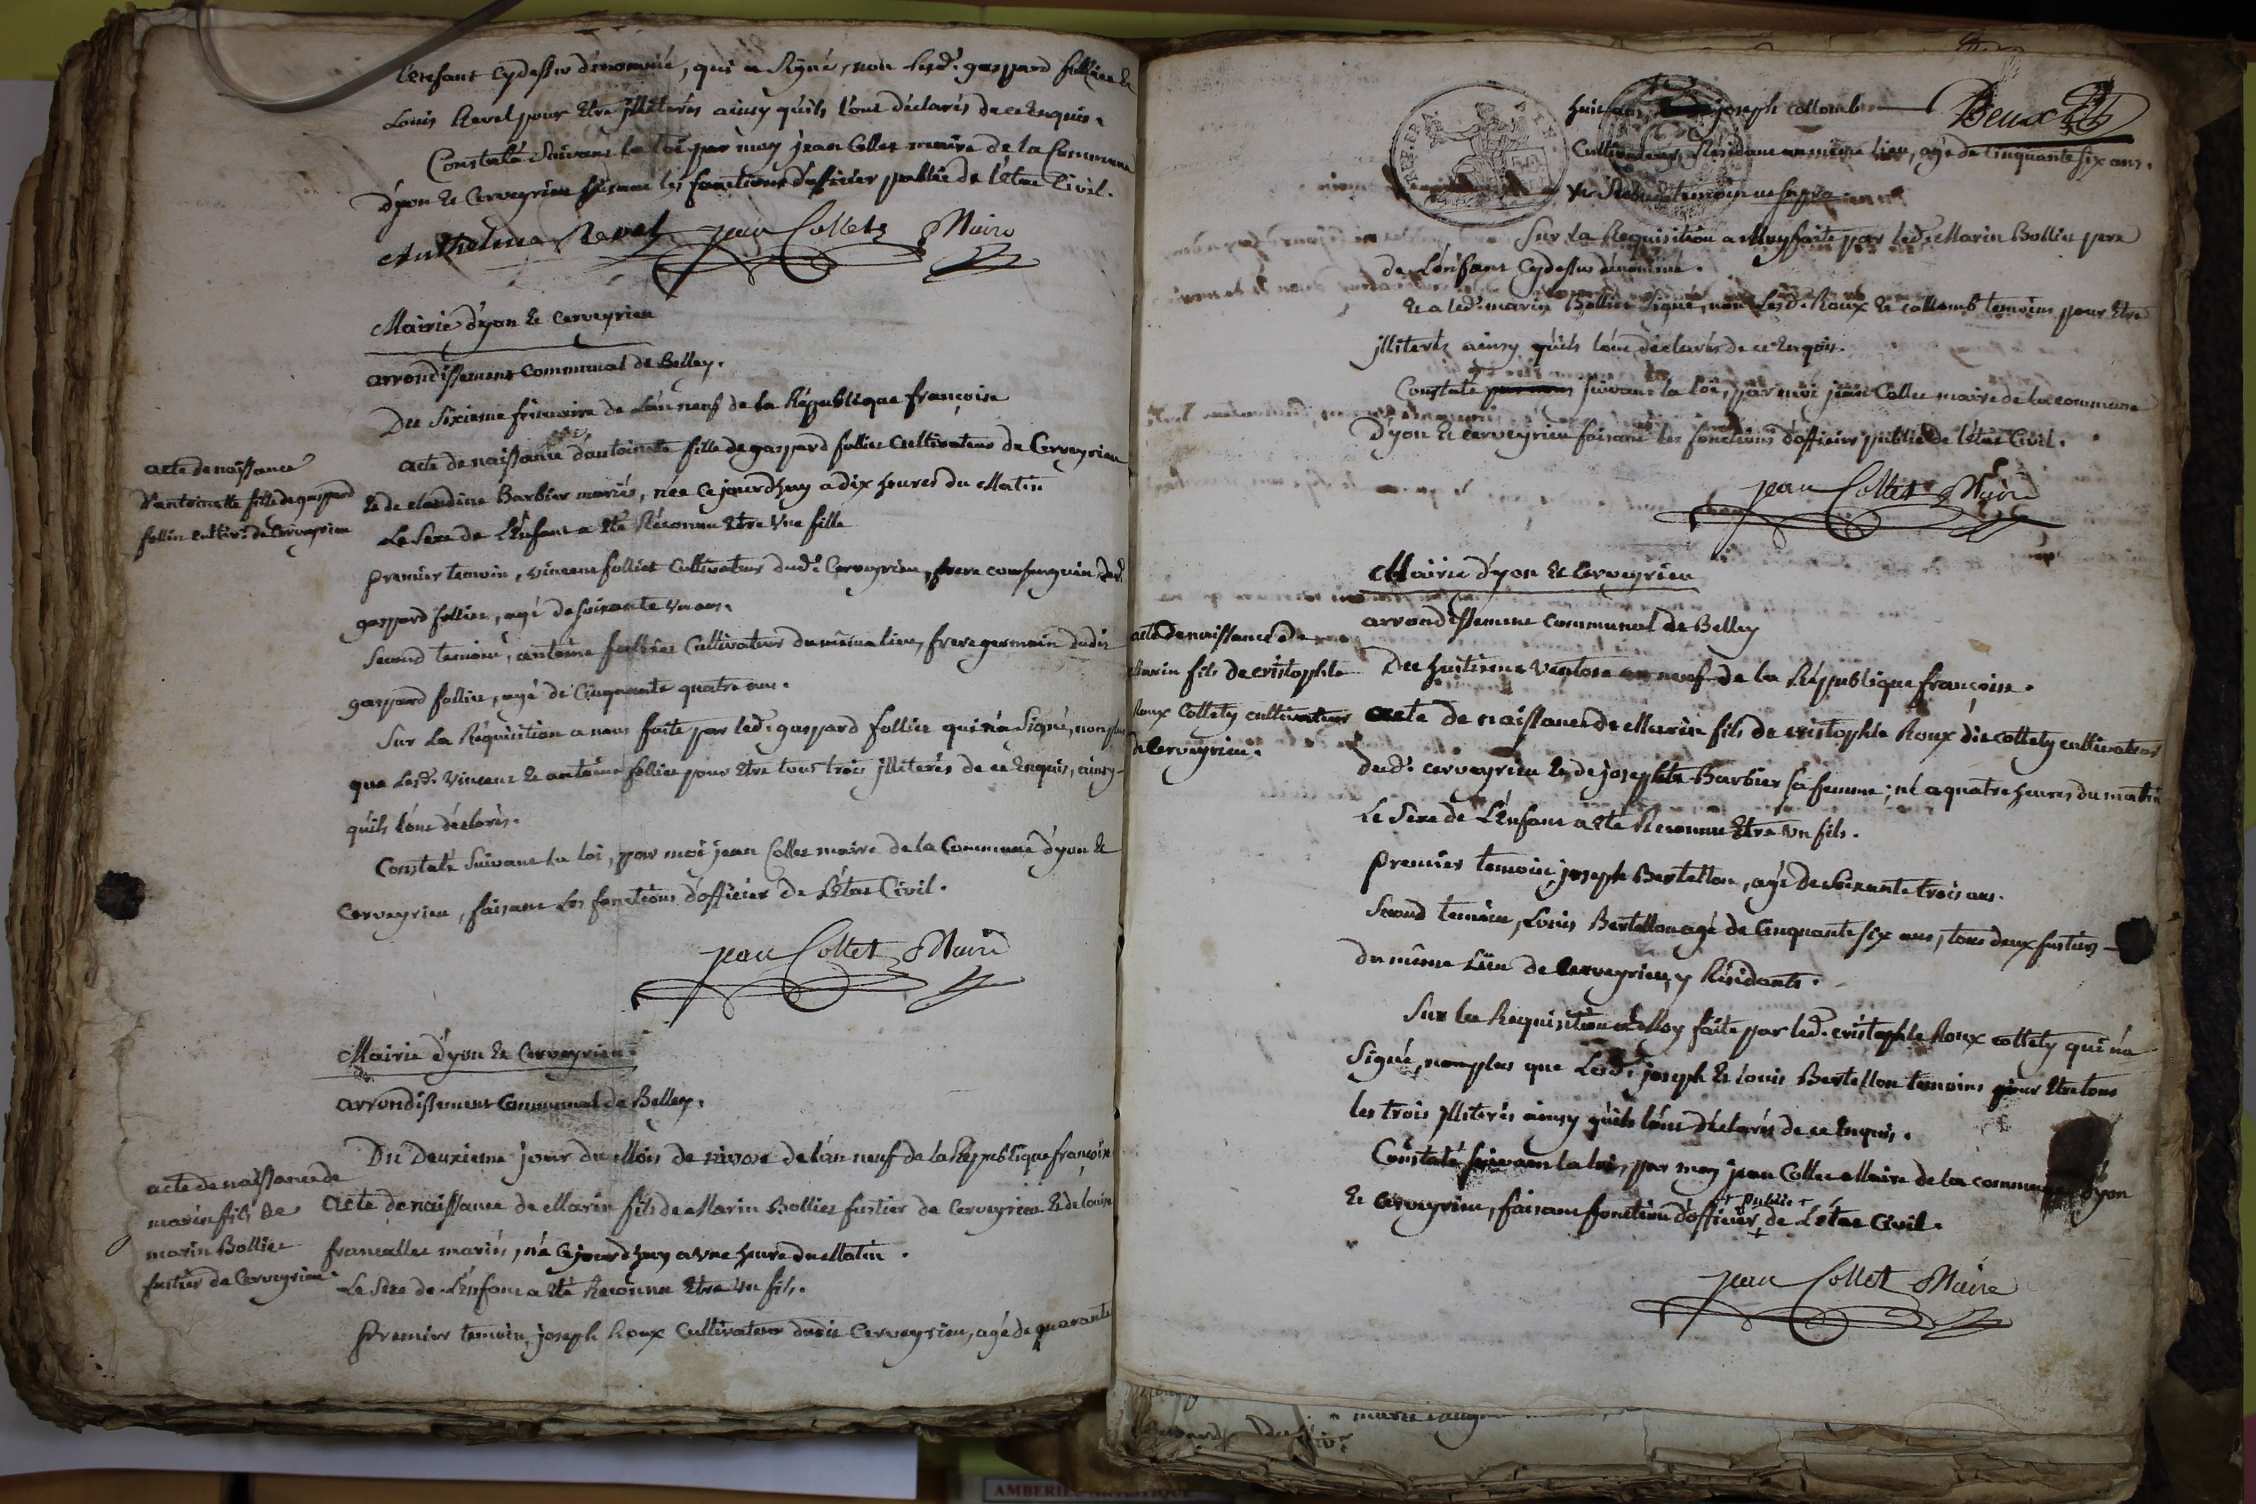 L'enfant cydessus dénommé, qui a signé, non lesd. gaspard follier et
Louis Revel pour être illiterés ainsy quils l'ont déclarés de ce enquis.
Constaté suivant la loi par moy jean Collet maire de la Commune
d'yon et Cerveyrieu faisant les fonctions d'officier public de l'état Civil.
Anthelme Revel jean Collet Maire
Mairie d'yon et Cerveyrieu
arrondissement Communal de Belley.
Du sixieme frimaire de L'an neuf de la République françoise
acte de naissance
d'antoinette fille de gaspard
follier cultivr. de Cerveyrieu
acte de naissance d'antoinette fille de gaspard follier Cultivateur de Cerveyrieu
et de claudine Barbier mariés, née Ce jourdhuy a dix heures du Matin
Le Sexe de L'Enfant a été Réconnu Etre Une fille
premier temoin, vincent folliet Cultivateur dud. Cerveyrieu, frere consanguin dud.
gaspard follier, agé de soixante un ans.
Second temoin, antoine folliet Cultivateur du même lieu, frere germain dudit
gaspard follier, agé de Cinquante quatre ans.
Sur La Réquisition a nous faite par led. gaspard follier qui n'a Signé, non plus
que Lesd. Vincent et antoine follier pour Etre tous trois illiterés de ce Enquis, ainsy
quils l'ont déclarés.
Constaté Suivant La loi, par moi jean Collet maire de la Commune d'yon et
Cerveyrieu, faisant Les fonctions d'officier de L'état Civil.
jean Collet Maire
Mairie d'yon et Cerveyrieu.
arrondissement Communal de Belley.
Du Deuxieme jour du Mois de nivose de L'an neuf de la République françoise
acte de naissance de
marin fils de
marin Bollier
fustier de Cerveyrieu.
Acte de naissance de Marin fils de Marin Bollier fustier de Cerveyrieu et de louise
francallet mariés, né Ce jourd'huy a une heure du Matin.
Le Sexe de L'Enfant a été Reconnu Etre Un fils.
Premier temoin, joseph Roux Cultivateur dudit Cerveyrieu, agé de quarante
huit ans, joseph collomb
Cultivateur, Résidant au même lieu, agé de Cinquante six ans.
Second temoin ut supra
Sur La Requisition a Moy faite par led. Marin Bollier pere
de L'énfant Cydessus dénommé.
Et a led. marin Bollier signé, non Lesd. Roux et collomb temoins pour Etre
illiterés ainsy quils l'ont déclarés de ce Enquis.
Constaté suivant la loi, par moi jean Collet maire de la commune
D'yon et Cerveyrieu faisant les fonctions d'officier public de l'état Civil.
jean Collet Maire
Mairie d'yon et Cerveyrieu
arrondissement Communal de Belley
acte de naissance de
Marin fils de cristophle
Roux Collety cultivateur
de Cerveyrieu.
Du huitieme Ventose an neuf de la République françoise.
Acte de naissance de Marin fils de cristophle Roux dit collety cultivateur
dud. cerveyrieu et de josephte Barbier sa femme; né a quatre heures du matin
Le Sexe de L'Enfant a été Reconnu Etre Un fils.
Premier temoin, joseph Bertellon, agé de soixante trois ans.
Second temoin, Louis Bertellon agé de Cinquante six ans, tous deux fustiers
du même Lieu de Cerveyrieu, y Résidants.
Sur la Requisition a Moy faite par led. cristophle Roux collety qui n'a
Signé, nomplus que Lesd. joseph et Louis Bertellon temoins pour Etre tous
les trois illiterés ainsy quils l'ont déclarés de ce Enquis.
Constaté suivant la loi, par moy jean Collet Maire de la commune d'yon
et Cerveyrieu, faisant fonction d'officier + public + de L'état Civil.
jean Collet Maire
AMBERIEU